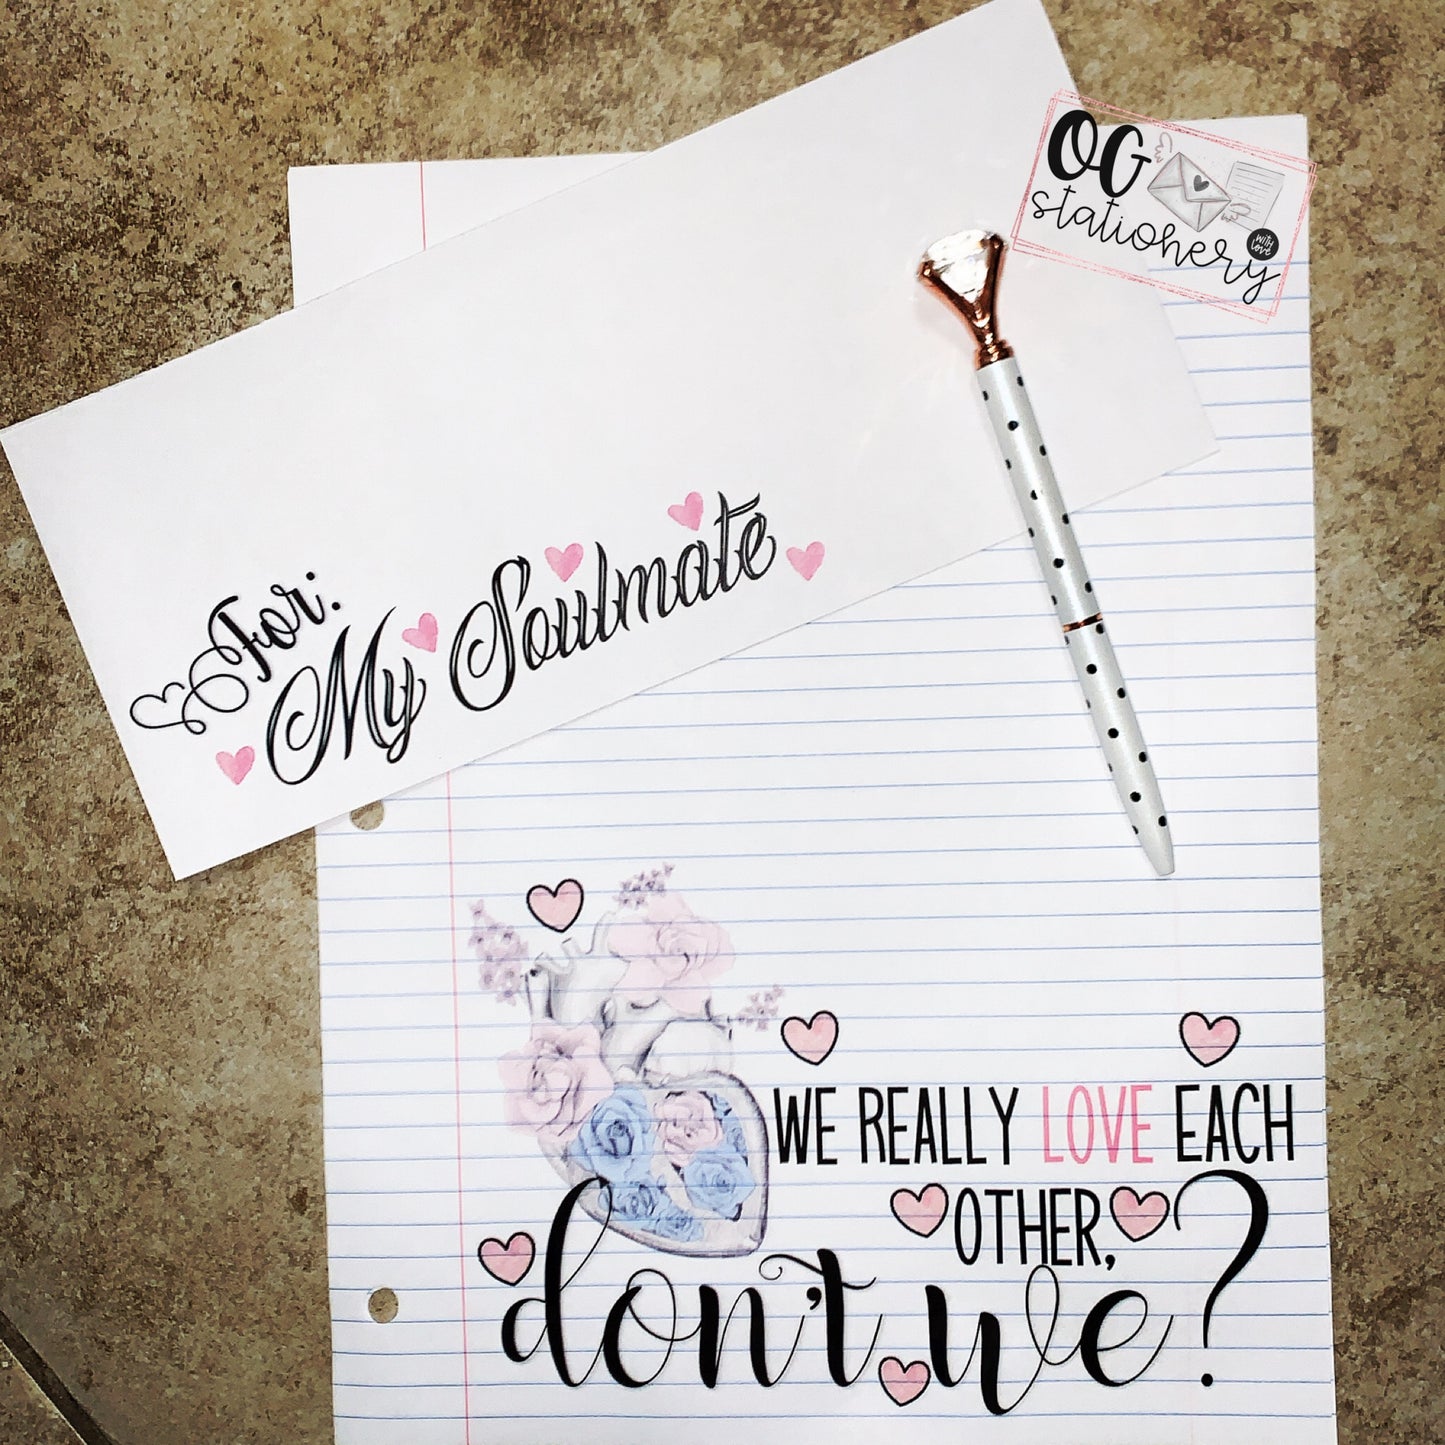 OG
stationery
WITH
LOVE
For:
My Soulmate
WE REALLY LOVE EACH
OTHER,
don't we?